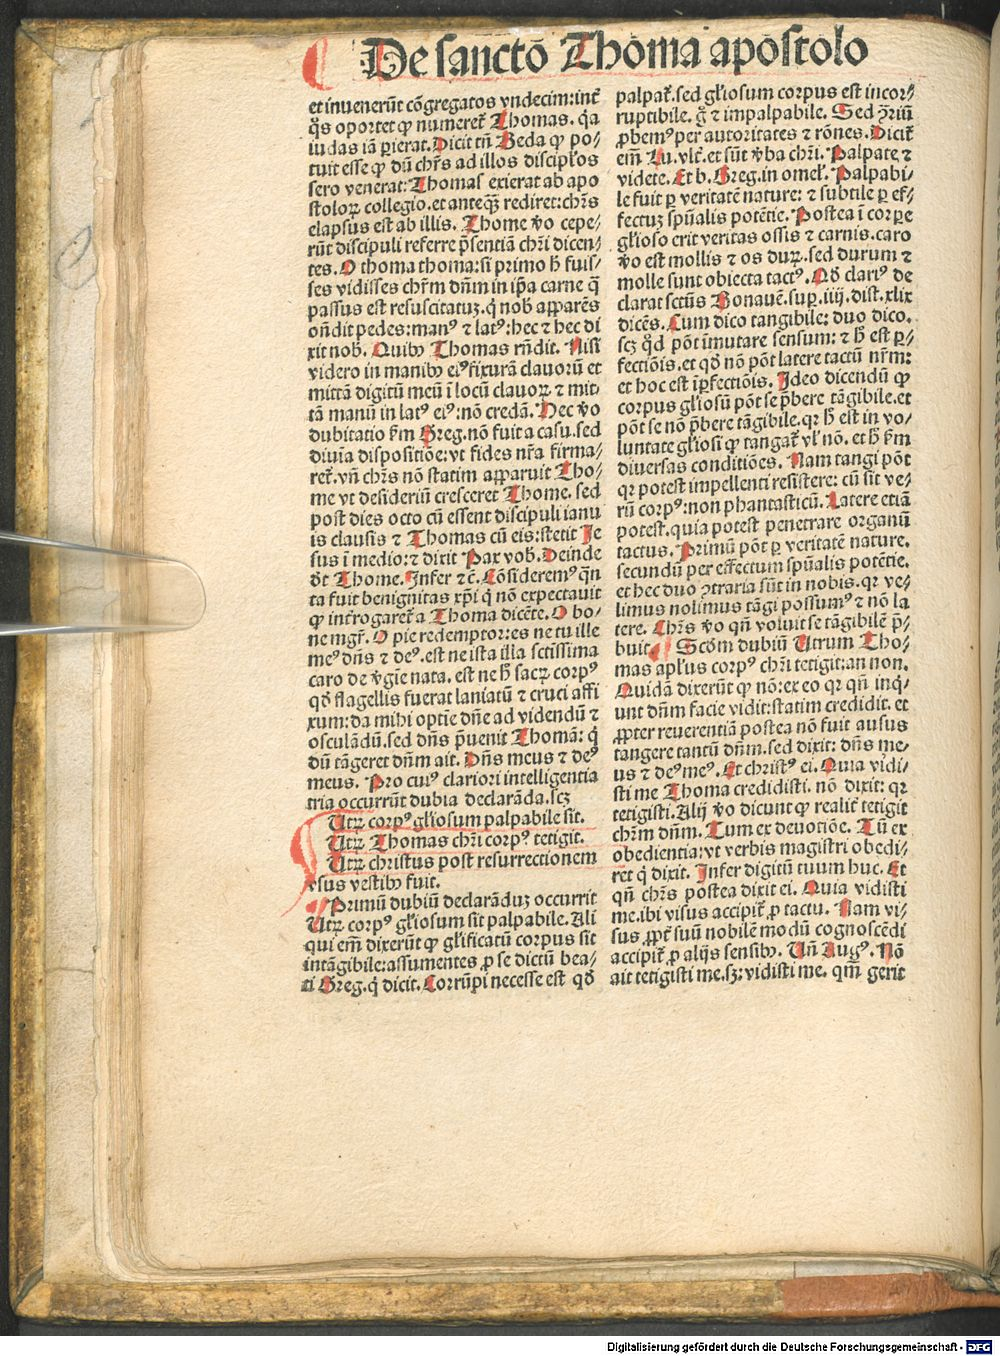 De sanctō Thōma apōstolo
et inuenerūt cōgregatos vndecim: int̄
q̄s oportet ꝙ numeret̄ Thomas. q̇a
iudas iā ꝑierat. Dicit tn̄ Beda ꝙ po-
tuit esse ꝙ dū chr̄s ad illos discipl̄os
sero venerat: Thomas exierat ab apo
stoloꝝ collegio. et anteqꝫ rediret: chr̄s
elapsus est ab illis. Thome v̄o cepe-
rūt discipuli referre p̄sentiā chr̄i dicen-
tes. O thoma thoma: si primo h̄ fuis-
ses vidisses chr̄m dn̄m in ip̄a carne q̄
passus est resuscitatuꝫ. q̇ nob̄ apparēs
on̄dit pedes: manꝰ ⁊ latꝰ: hec ⁊ hec di
xit nob̄. Quibꝫ Thomas rn̄dit. Nisi
videro in manibꝫ eiꝰ fixurā clauorū et
mittā digitū meū ī locū clauoꝝ ⁊ mit-
tā manū in latꝰ eiꝰ: nō credā. Hec v̄o
dubitatio f̄m Greg. nō fuit a casu. sed
diuīa dispositiōe: vt fides nr̄a firma-
ret̄. vn̄ chr̄s nō statim apparuit Tho-
me vt desideriū cresceret Thome. sed
post dies octo cū essent discipuli ianu
is clausis ⁊ Thomas cū eis: stetit Je
sus ī medio: ⁊ dixit Pax vob̄. Deinde
d̄t Thome. Infer ⁊c̄. Cōsideremꝰ q̄n
ta fuit benignitas xp̄i q̇ nō expectauit
ꝙ int̄rogaret̄ a Thoma dicēte. O bo-
ne mgr̄. O pie redemptor: es ne tu ille
meꝰ dn̄s ⁊ deꝰ. est ne ista illa sctissima
caro de v̄gie nata. est ne h̄ sacꝝ corpꝰ
qd̄ flagellis fuerat laniatū ⁊ cruci affi
xum: da mihi optīe dn̄e ad videndū ⁊
osculādū. sed dn̄s p̄uenit Thomā: q̇
dū tāgeret dn̄m ait. Dn̄s meus ⁊ deꝰ
meus. Pro cuiꝰ clariori intelligentia
tria occurrūt dubia declarāda. scꝫ
Utꝝ corpꝰ gl̄iosum palpabile sit.
Utꝝ Thomas chr̄i corpꝰ tetigit.
Utꝝ christus post resurrectionem
vsus vestibꝫ fuit.
Primū dubiū declarāduꝫ occurrit
Utꝝ corpꝰ gl̄iosum sit palpabile. Ali
qui em̄ dixerūt ꝙ gl̄ificatū corpus sit
intāgibile: assumentes ꝓ se dictū bea-
ti Greg. q̇ dicit. Corrūpi necesse est qd̄
palpat̄. sed gl̄iosum corpus est incor-
ruptibile. g̊ ⁊ impalpabile. Sed ꝯriū
ꝓbemꝰ per autoritates ⁊ rōnes. Dicit̄
eīn Lu. vlt̄. et sūt v̄ba chr̄i. Palpate ⁊
videte. Et b. Greg. in omel̄. Palpabi-
le fuit ꝑ veritatē nature: ⁊ subtile ꝑ ef-
fectuꝫ spūalis potētie. Postea ī corꝑe
gl̄ioso erit veritas ossis ⁊ carnis. caro
v̄o est mollis ⁊ os duꝝ. sed durum ⁊
molle sunt obiecta tactꝰ. Qd̄ clariꝰ de
clarat sctūs Bonauē. suꝑ .iiij. dist. xlix
dicēs. Cum dico tangibile: duo dico.
scꝫ q̊d pōt īmutare sensum: ⁊ h̄ est ꝑ-
fectiōis. et qd̄ nō pōt latere tactū nr̄m:
et hoc est īꝑfectiōis. Ideo dicendū ꝙ
corpus gl̄iosū pōt se p̄bere tāgibile. et
pōt se nō p̄bere tāgibile. qꝛ h̄ est in vo-
luntate gl̄iosi ꝙ tangat̄ vl̄ nō. et h̄ f̄m
diuersas conditiōes. Nam tangi pōt
qꝛ potest impellenti resistere: cū sit ve-
rū corpꝰ: non phantasticū. Latere etiā
potest. quia potest penetrare organū
tactus. Primū pōt ꝑ veritatē nature.
secundū per effectum spūalis potētie.
et hec duo ꝯtraria sūt in nobis. qꝛ ve-
limus nolimus tāgi possumꝰ ⁊ nō la
tere. Chr̄s v̄o qn̄ voluit se tāgibilē p̄-
buit. Scd̄m dubiū Utrum Tho-
mas apl̄us corpꝰ chr̄i tetigit: an non.
Quidā dixerūt ꝙ nō: ex eo qꝛ qn̄ inq̇-
unt dn̄m facie vidit: statim credidit. et
ꝓpter reuerentiā postea nō fuit ausus
tangere tantū dn̄m. sed dixit: dn̄s me-
us ⁊ deꝰ meꝰ. Et christꝰ ei. Quia vidi-
sti me Thoma credidisti. nō dixit: qꝛ
tetigisti. Alij v̄o dicunt ꝙ realit̄ tetigit
chr̄m dn̄m. Tum ex deuotiōe. Tū ex
obedientia: vt verbis magistri obedi-
ret q̇ dixit. Infer digitū tuum huc. Et
qn̄ chr̄s postea dixit ei. Quia vidisti
me. ibi visus accipit̄ ꝓ tactu. Nam vi-
sus ꝓpt̄ suū nobilē modū cognoscēdi
accipit̄ ꝓ alijs sensibꝫ. Un̄ Augꝰ. Nō
ait tetigisti me. sꝫ: vidisti me. qm̄ gerit
Digitalisierung gefördert durch die Deutsche Forschungsgemeinschaft - DFG